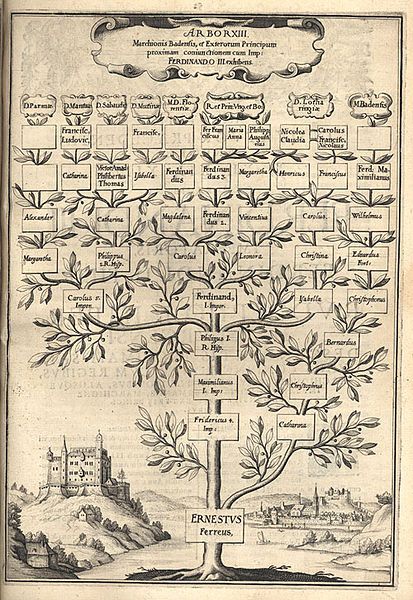 ARBOR XIII.
Marchionis Badensis, et Exterorum Principum
proximam coniunctionem cum Imp:
FERDINANDO III. exhibens.
D. Parmæ
D. Mantuæ
D. Sabaudiæ
D. Mutinæ
M.D. Florentiæ
R. et Prin. Vng. et Bo.
D. Lotharingiæ
M. Badensis
Francisc,
Ludovic,
Francisc,
Fer. Franciscus
Maria
Anna
Philipp
Nicolea
Claudia
Carolus
Francisc,
Nicolaus
Catharina
Victor Amad
Philibertus
Thomas
Isabella
Ferdinandus
Ferdinandus 3.
Margaretha
Henricus
Franciscus
Ferd: Maximilianus
Alexander
Catharina
Magdalena
Ferdinandus 2.
Vincentius
Carolus.
Wilhelmus
Margaretha
Philippus
2. R. Hisp.
Carolus
Leonora
Christina
Eduardus
Fort:
Carolus 5.
Imper.
Ferdinand,
I. Imper.
Ysabella
Christophorus
Philippus I.
R. Hisp.
Bernardus
Maximilianus
I. Imp:
Christophorus
Fridericus 4.
Imp:
Catharina
ERNESTVS
Ferreus,